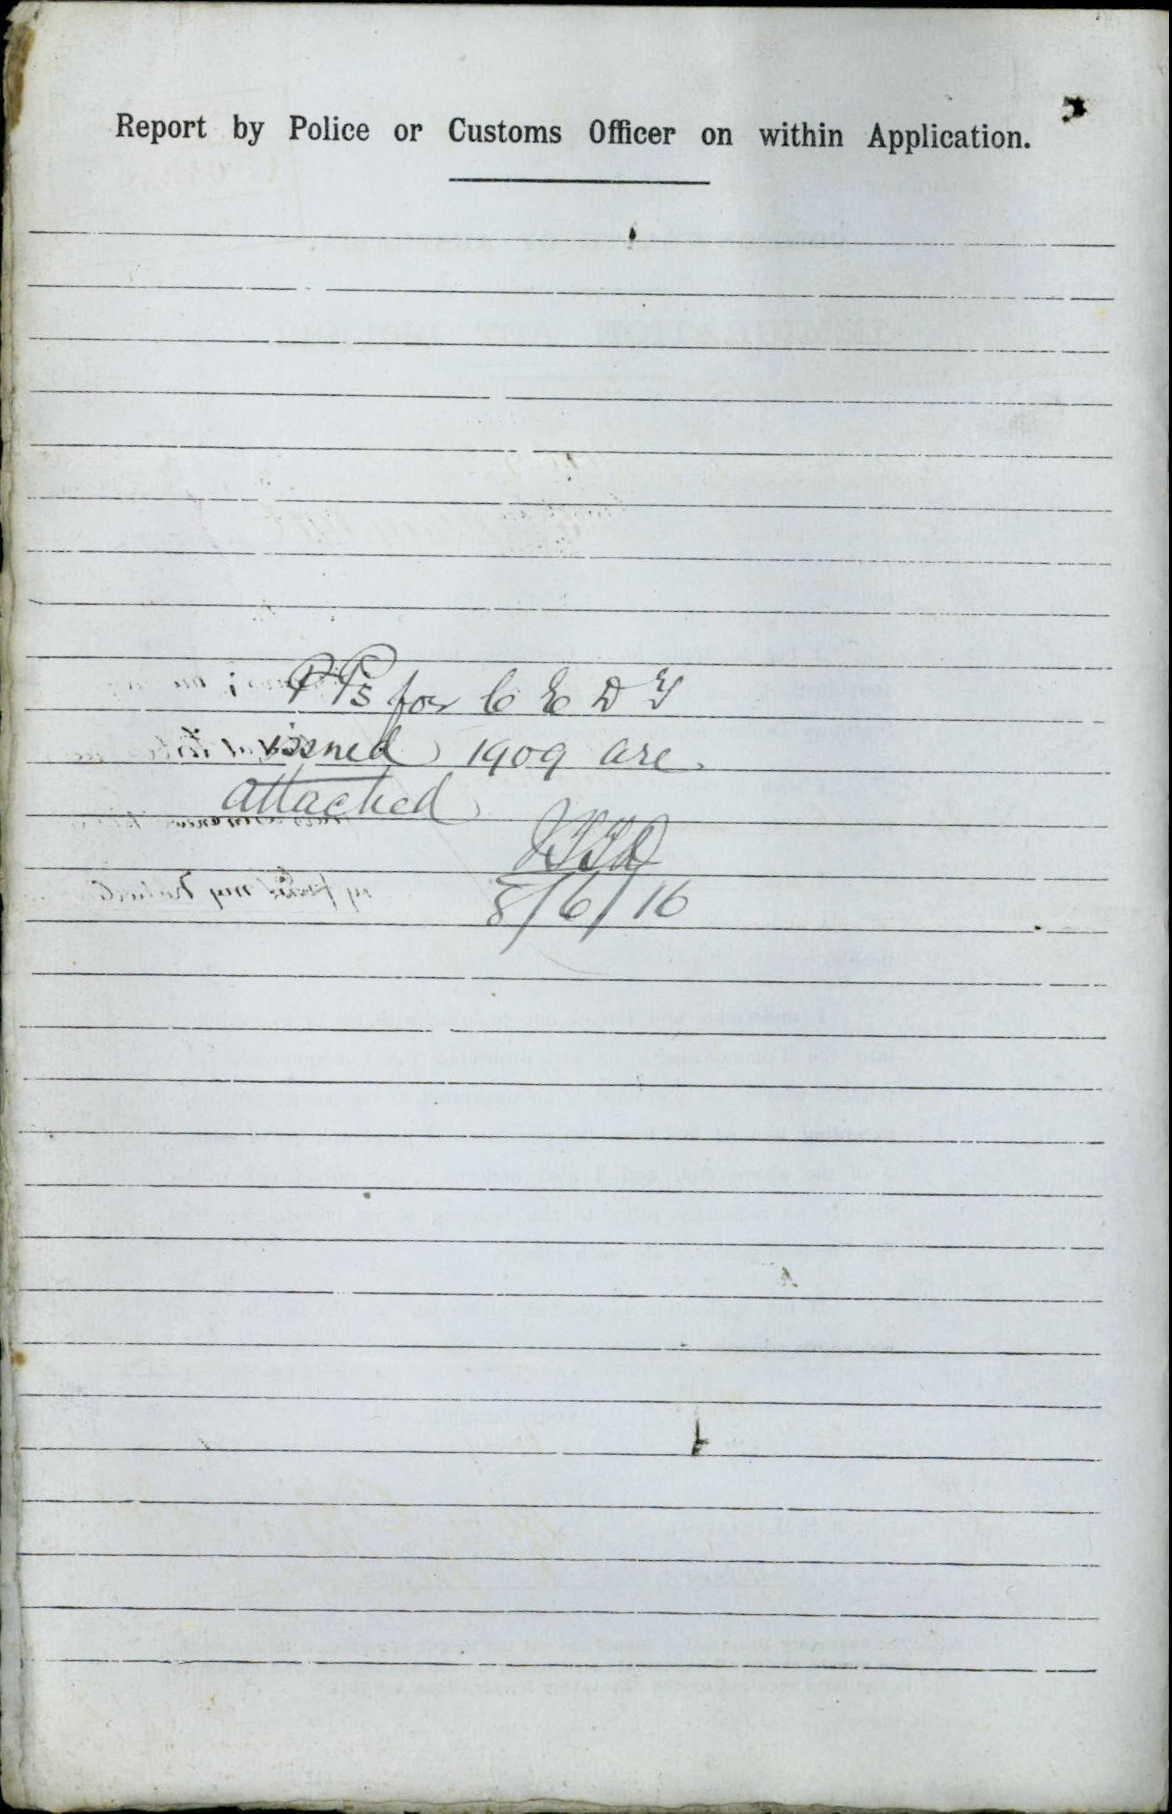 Report by Police or Customs Officer on within Application.
PPs for C E D T
issued 1909 are
attached
8/6/16